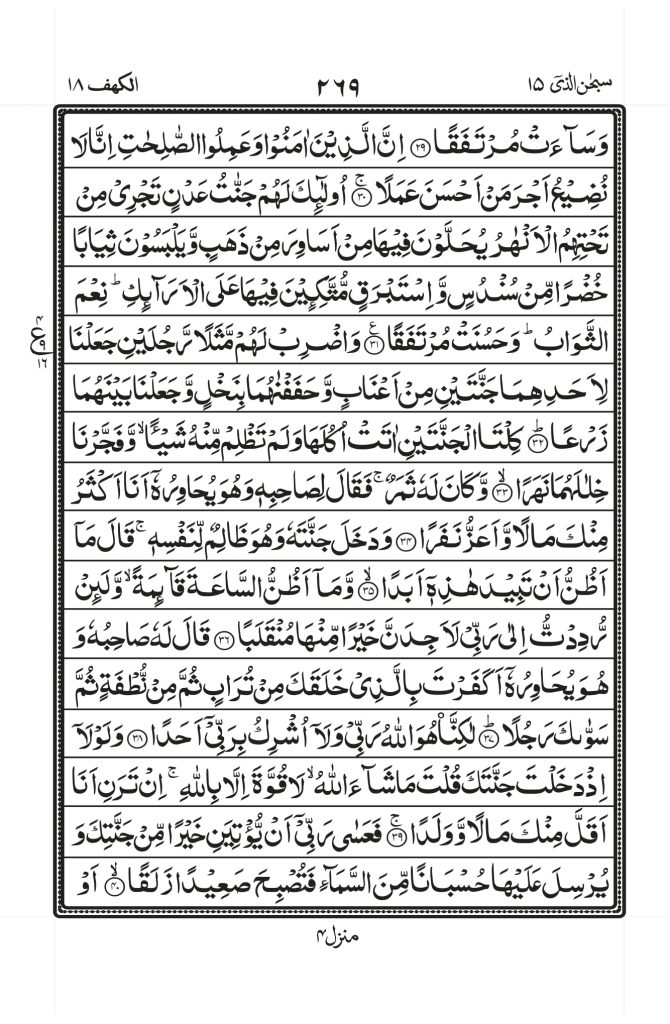 سبحٰن الذیٓ ۱۵
۲۶۹
الکهف ۱۸
وَسَآءَتۡ مُرۡتَفَقًا ﴿۲۹﴾ اِنَّ الَّذِيۡنَ اٰمَنُوۡا وَعَمِلُوا الصّٰلِحٰتِ اِنَّا لَا
نُضِيۡعُ اَجۡرَ مَنۡ اَحۡسَنَ عَمَلًا ۚ﴿۳۰﴾ اُولٰٓئِكَ لَهُمۡ جَنّٰتُ عَدۡنٍ تَجۡرِىۡ مِنۡ
تَحۡتِهِمُ الۡاَنۡهٰرُ يُحَلَّوۡنَ فِيۡهَا مِنۡ اَسَاوِرَ مِنۡ ذَهَبٍ وَّيَلۡبَسُوۡنَ ثِيَابًا
خُضۡرًا مِّنۡ سُنۡدُسٍ وَّاِسۡتَبۡرَقٍ مُّتَّكِـِٕيۡنَ فِيۡهَا عَلَى الۡاَرَآئِكِ‌ ؕ نِعۡمَ
الثَّوَابُ ؕ وَحَسُنَتۡ مُرۡتَفَقًا ﴿۳۱﴾ وَاضۡرِبۡ لَهُمۡ مَّثَلًا رَّجُلَيۡنِ جَعَلۡنَا
لِاَحَدِهِمَا جَنَّتَيۡنِ مِنۡ اَعۡنَابٍ وَّحَفَفۡنٰهُمَا بِنَخۡلٍ وَّجَعَلۡنَا بَيۡنَهُمَا
زَرۡعًا ؕ﴿۳۲﴾ كِلۡتَا الۡجَنَّتَيۡنِ اٰتَتۡ اُكُلَهَا وَلَمۡ تَظۡلِمۡ مِّنۡهُ شَيۡـًٔـا‌ ۙ وَّفَجَّرۡنَا
خِلٰلَهُمَا نَهَرًا ۙ﴿۳۳﴾ وَّكَانَ لَهٗ ثَمَرٌ‌ ۚ فَقَالَ لِصَاحِبِهٖ وَهُوَ يُحَاوِرُهٗۤ اَنَا اَكۡثَرُ
مِنۡكَ مَالًا وَّاَعَزُّ نَفَرًا ﴿۳۴﴾ وَدَخَلَ جَنَّتَهٗ وَهُوَ ظَالِمٌ لِّنَفۡسِهٖ‌ ۚ قَالَ مَاۤ
اَظُنُّ اَنۡ تَبِيۡدَ هٰذِهٖۤ اَبَدًا ۙ﴿۳۵﴾ وَّمَاۤ اَظُنُّ السَّاعَةَ قَآئِمَةً ۙ وَّلَئِنۡ
رُّدِدْتُّ اِلٰى رَبِّىۡ لَاَجِدَنَّ خَيۡرًا مِّنۡهَا مُنۡقَلَبًا ﴿۳۶﴾ قَالَ لَهٗ صَاحِبُهٗ وَ
هُوَ يُحَاوِرُهٗۤ اَكَفَرۡتَ بِالَّذِىۡ خَلَقَكَ مِنۡ تُرَابٍ ثُمَّ مِنۡ نُّطۡفَةٍ ثُمَّ
سَوّٰٮكَ رَجُلًا ؕ﴿۳۷﴾ لٰـكِنَّا۟ هُوَ اللّٰهُ رَبِّىۡ وَلَاۤ اُشۡرِكُ بِرَبِّىۡۤ اَحَدًا ﴿۳۸﴾ وَلَوۡلَاۤ
اِذۡ دَخَلۡتَ جَنَّتَكَ قُلۡتَ مَا شَآءَ اللّٰهُ ۙ لَا قُوَّةَ اِلَّا بِاللّٰهِ‌ ۚ اِنۡ تَرَنِ اَنَا
اَقَلَّ مِنۡكَ مَالًا وَّوَلَدًا‌ ۚ﴿۳۹﴾ فَعَسٰى رَبِّىۡۤ اَنۡ يُّؤۡتِيَنِ خَيۡرًا مِّنۡ جَنَّتِكَ وَ
يُرۡسِلَ عَلَيۡهَا حُسۡبَانًا مِّنَ السَّمَآءِ فَتُصۡبِحَ صَعِيۡدًا زَلَـقًا ۙ﴿۴۰﴾ اَوۡ
۴
ع
۹
۱۶
منزل ۴